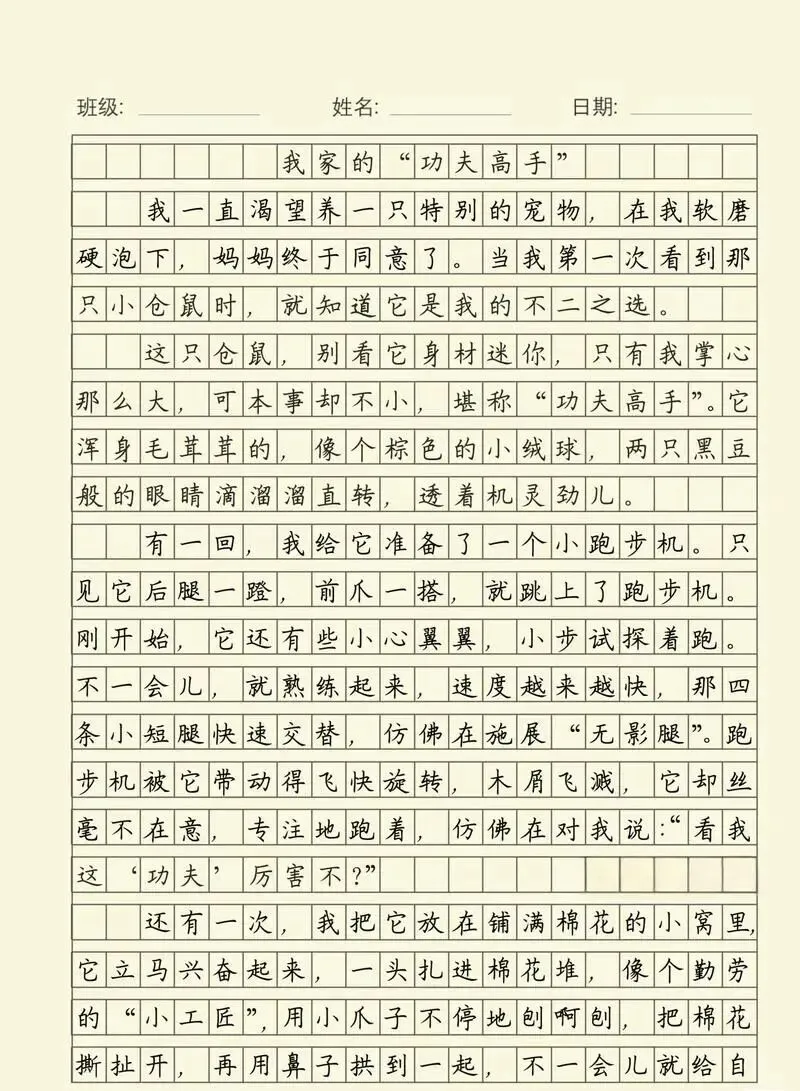 班级: 姓名: 日期:
我家的“功夫高手”
我一直渴望养一只特别的宠物，在我软磨
硬泡下，妈妈终于同意了。当我第一次看到那
只小仓鼠时，就知道它是我的不二之选。
这只仓鼠，别看它身材迷你，只有我掌心
那么大，可本事却不小，堪称“功夫高手”。它
浑身毛茸茸的，像个棕色的小绒球，两只黑豆
般的眼睛滴溜溜直转，透着机灵劲儿。
有一回，我给它准备了一个小跑步机。只
见它后腿一蹬，前爪一搭，就跳上了跑步机。
刚开始，它还有些小心翼翼，小步试探着跑。
不一会儿，就熟练起来，速度越来越快，那四
条小短腿快速交替，仿佛在施展“无影腿”。跑
步机被它带动得飞快旋转，木屑飞溅，它却丝
毫不在意，专注地跑着，仿佛在对我说：“看我
这‘功夫’厉害不？”
还有一次，我把它放在铺满棉花的小窝里，
它立马兴奋起来，一头扎进棉花堆，像个勤劳
的“小工匠”，用小爪子不停地刨啊刨，把棉花
撕扯开，再用鼻子拱到一起，不一会儿就给自